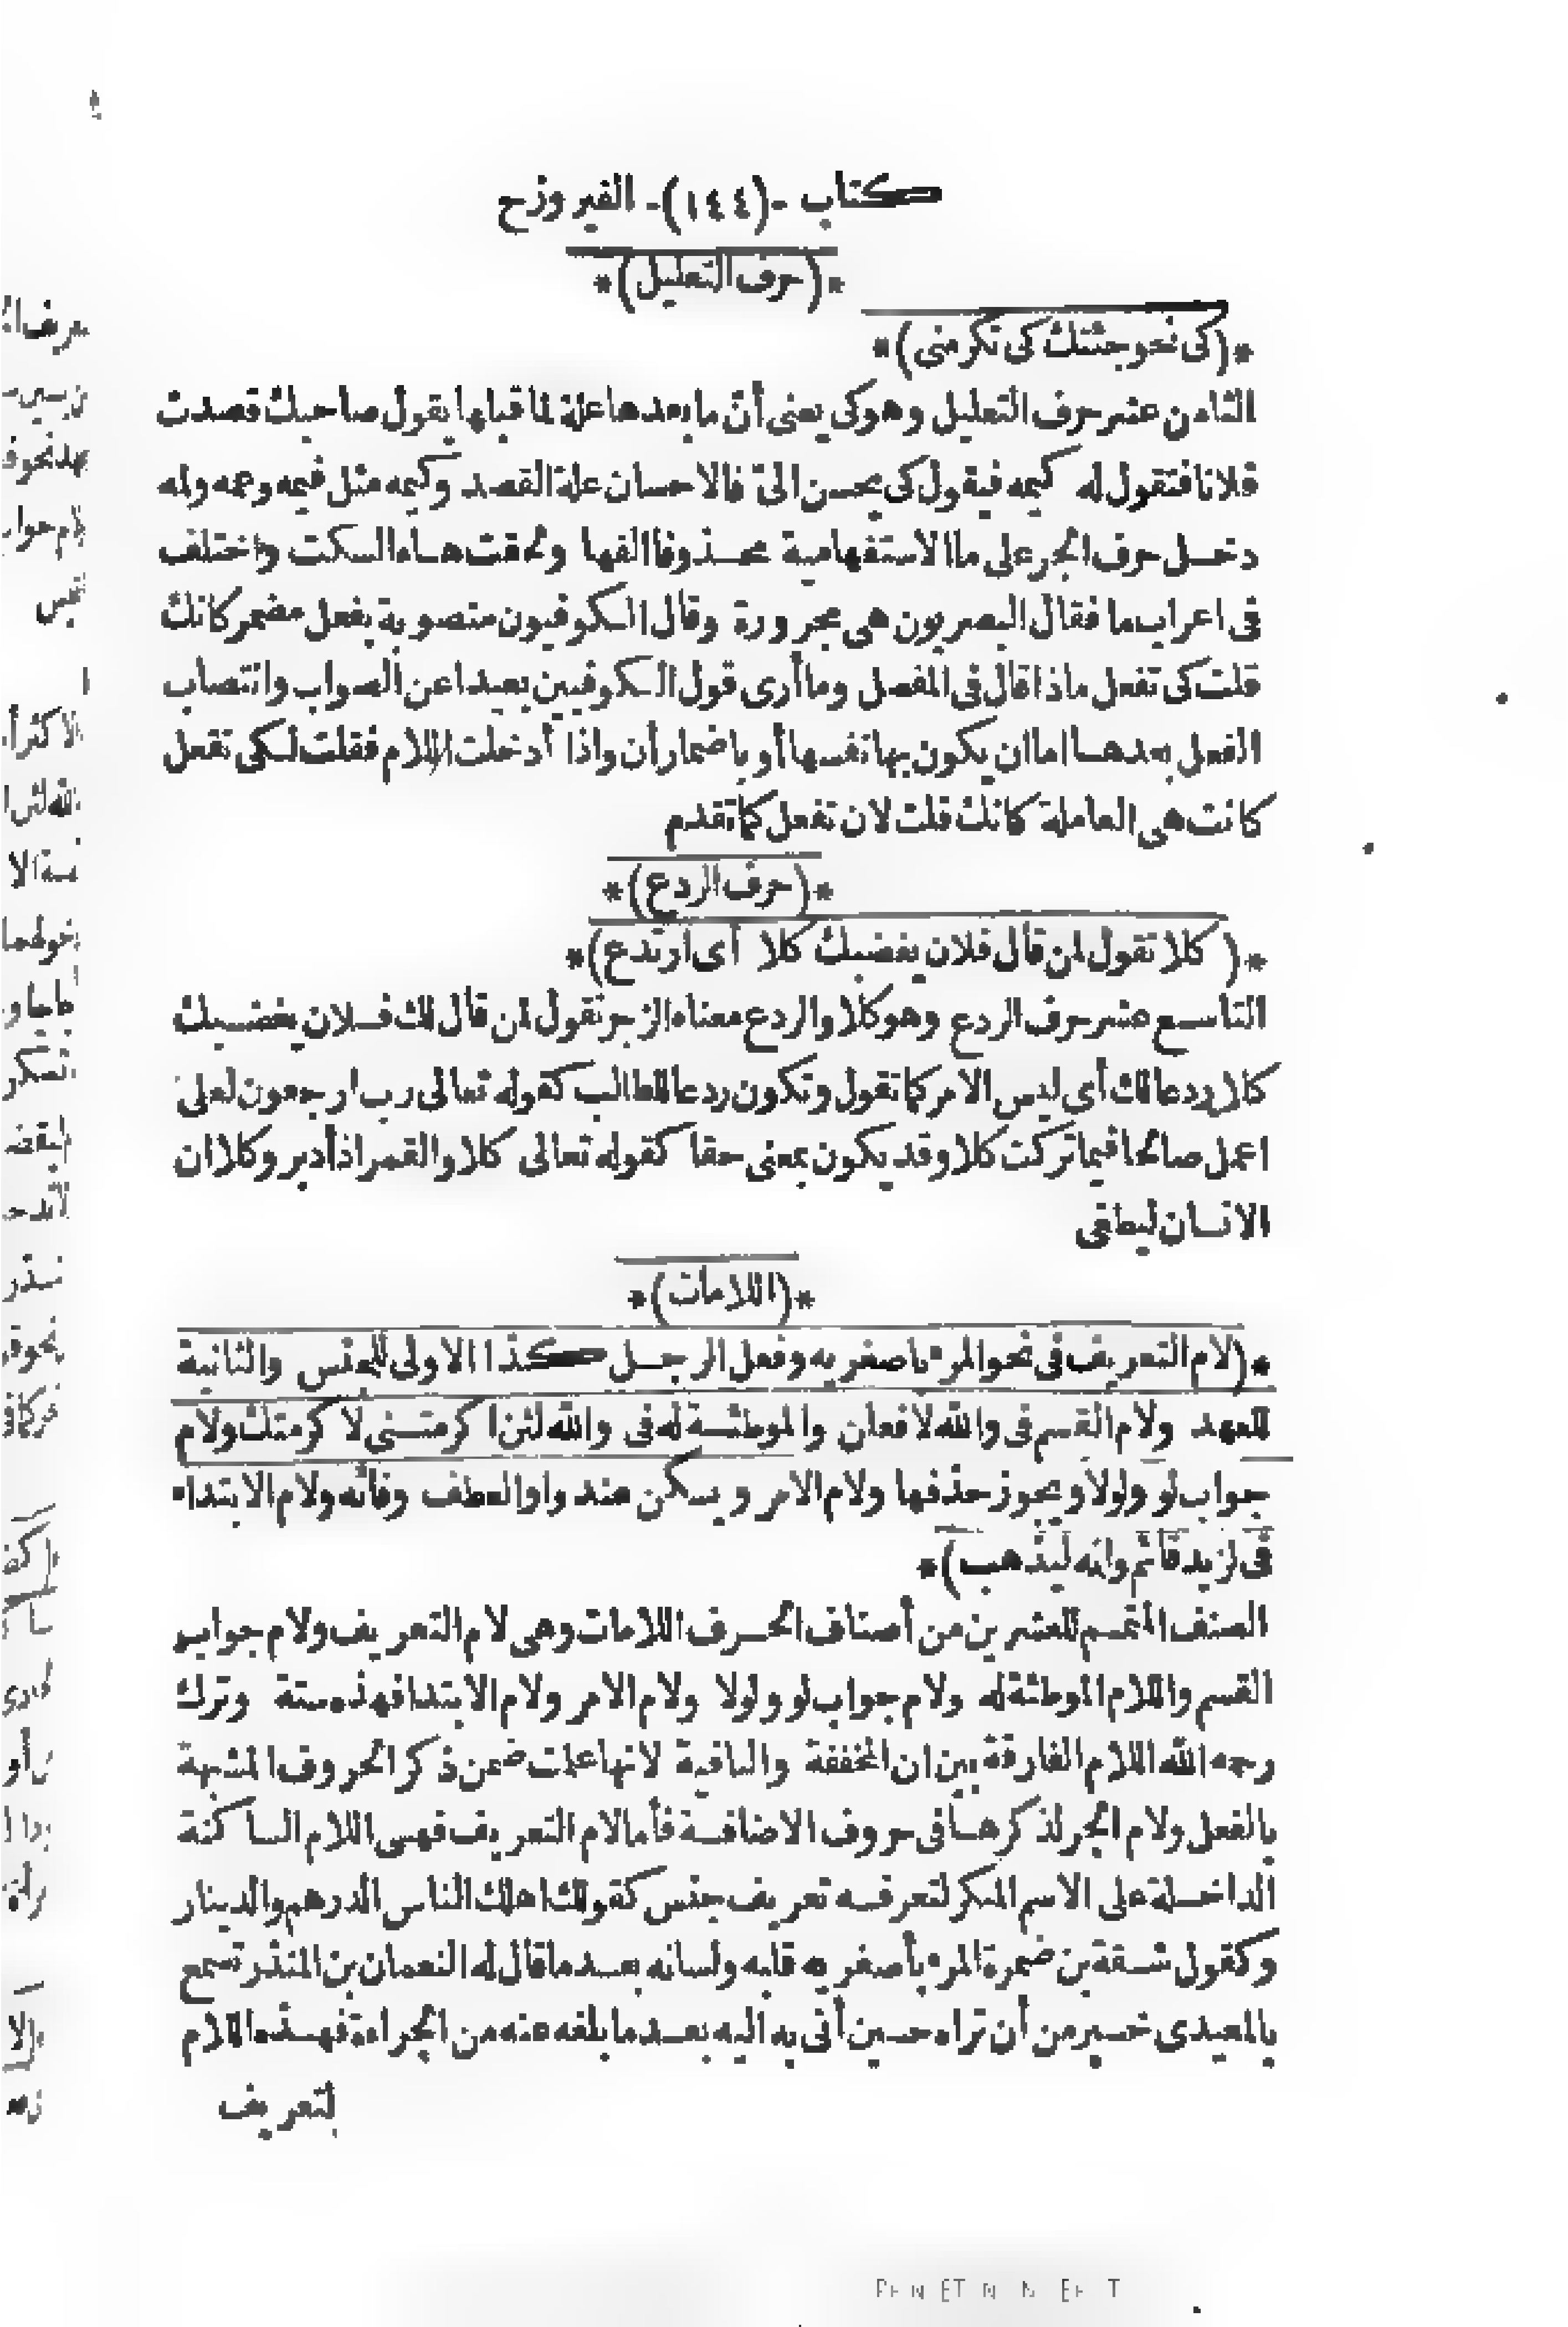 كتاب -(١٤٤)- الفيروزج
*(حرف التعليل)*
*(كى نحو جئتك كى تكرمنى)*
الثامن عشر حرف التعليل وهو كى يعنى أنّ ما بعدها علة لما قبلها يقول صاحبك قصدت
فلانا فتقول له كيمه فيقول كى يحسن الىّ فالاحسان علة القصد وكيمه مثل فيمه وعمه ولمه
دخل حرف الجر على ما الاستفهامية محذوفا الفها ولحقت هاء السكت واختلف
فى اعراب ما فقال البصريون هى مجرورة وقال الكوفيون منصوبة بفعل مضمر كانك
قلت كى تفعل ماذا قال فى المفصل وما أرى قول الكوفيين بعيدا عن الصواب وانتصاب
الفعل بعدها اما ان يكون بها نفسها أو باضمار أن واذا أدخلت اللام فقلت لكى تفعل
كانت هى العاملة كانك قلت لان تفعل كما تقدم
*(حرف الردع)*
*(كلا تقول لمن قال فلان يغضبك كلا أى ارتدع)*
التاسع عشر حرف الردع وهو كلا والردع معناه الزجر تقول لمن قال لك فلان يغضبك
كلا ردعا لك أى ليس الامر كما تقول وتكون ردعا للطالب كقوله تعالى رب ارجعون لعلى
اعمل صالحا فيما تركت كلا وقد يكون بمعنى حقا كقوله تعالى كلا والقمر اذ أدبر وكلا ان
الانسان ليطغى
*(اللامات)*
*(لام التعريف فى نحو المرء باصغريه وفعل الرجل كذا الاولى للجنس والثانية
للعهد ولام القسم فى والله لافعلن والموطئة له فى والله لئن اكرمتنى لاكرمتك ولام
جواب لو ولولا ويجوز حذفها ولام الامر ويسكن عند واو العطف وفائه ولام الابتداء
فى لزيد قائم وانه ليذهب)*
الصنف المتمم للعشرين من أصناف الحرف اللامات وهى لام التعريف ولام جواب
القسم واللام الموطئة له ولام جواب لو ولولا ولام الامر ولام الابتدا فهذه ستة وترك
رحمه الله اللام الفارقة بين ان المخففة والنافية لانها علمت ضمن ذكر الحروف المشبهة
بالفعل ولام الجر لذكرها فى حروف الاضافة فأما لام التعريف فهى اللام الساكنة
الداخلة على الاسم المنكر لتعرفه تعريف جنس كقولك اهلك الناس الدرهم والدينار
وكقول شقة بن ضمرة المرء بأصغريه قلبه ولسانه بعد ما قال له النعمان بن المنذر تسمع
بالمعيدى خير من أن تراه حين أتى به اليه بعد ما بلغه عنه من الجراءة فهذه اللام
لتعريف